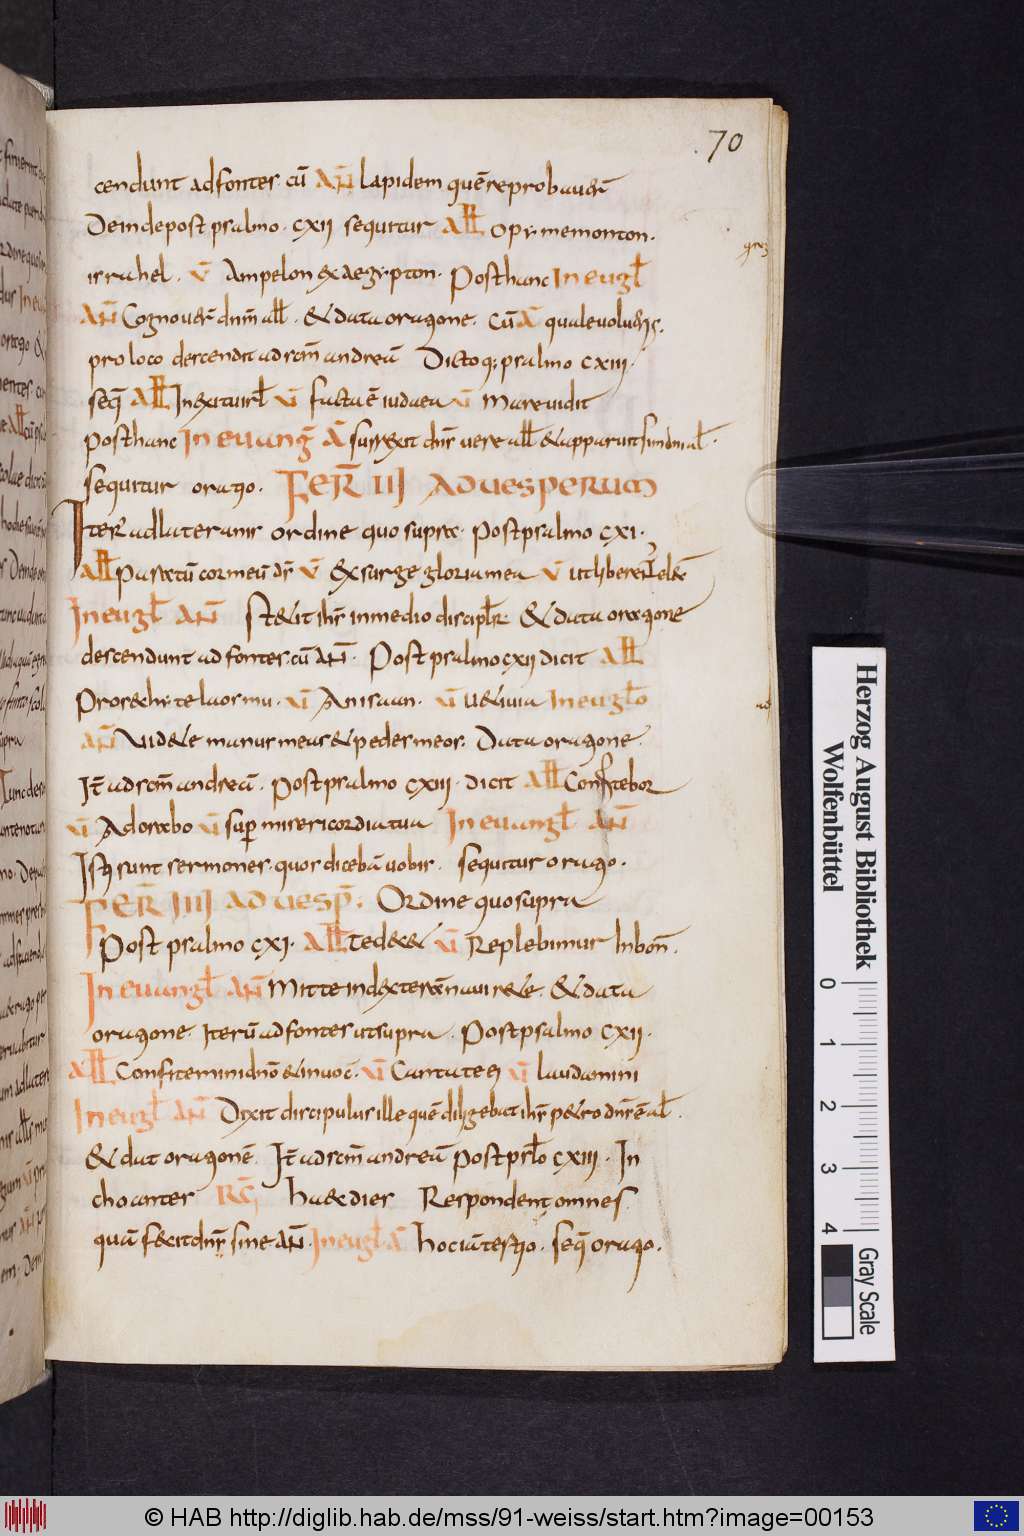 70
cendunt ad fontes cū AN̄ Lapidem quē reprobauer̄
Deinde post psalmo CXII sequitur ALL O py memonton
israhel V̄ Ampelon ex aegypton Post hanc In eugl̄
AN̄ Cognouer̄ dnm̄ all & data oratione cū Ā quale uoluer
pro loco descendit ad scm̄ andreā Dictoq; psalmo CXIII
seq̄ ALL In exitu isrl̄ V̄ facta ē iudaea V̄ Mare uidit
Post hanc In euang̅ Ā surrexit dn̄s uere all & apparuit
sequitur oratio FER̄ III AD UESPERUM
Iter̄ ad lateranis ordine quo supra Post psalmo CXI
ALL Paratū cor meū d̄s V̄ Exsurge gloria mea V̄ Ut liberent̄
In eugl̄ AN̄ Stetit ih̄s in medio discipl̄s & data oratione
descendunt ad fontes cū AN̄ Post psalmo CXII dicit ALL
Prosechyte laos mu V̄
AN̄ Uidete manus meas & pedes meos Data oratione
It̄ ad scm̄ andreā Post psalmo CXIII dicit ALL Confitebor
V̄ Adorabo V̄ sup̄ misericordia tua In euangl̄ AN̄
Isti sunt sermones quos dicebā uobis sequitur oratio
FER̄ IIII AD UESP̄ Ordine quo supra
Post psalmo CXI ALL Te decet V̄ Replebimur In bon̄
In euangl̄ AN̄ Mitte in dexterā nauis rete & data
oratione Iterū ad fontes ut supra Post psalmo CXII
ALL Confitemini dn̄o & inuoc̄ V̄ Cantate ei V̄ laudamini
In eugl̄ AN̄ Dixit discipulus ille quē diligebat ih̄s petro dn̄s ē al̄
& dat orationē It̄ ad scm̄ andreā post psl̄o CXIII In
choantes RC̄ Haec dies Respondent omnes
quā fecit dn̄s sine AN̄ In eugl̄ Ā Hoc iā tertio seq̄ oratio
Herzog August Bibliothek
Wolfenbüttel
0 1 2 3 4
Gray Scale
© HAB http://diglib.hab.de/mss/91-weiss/start.htm?image=00153